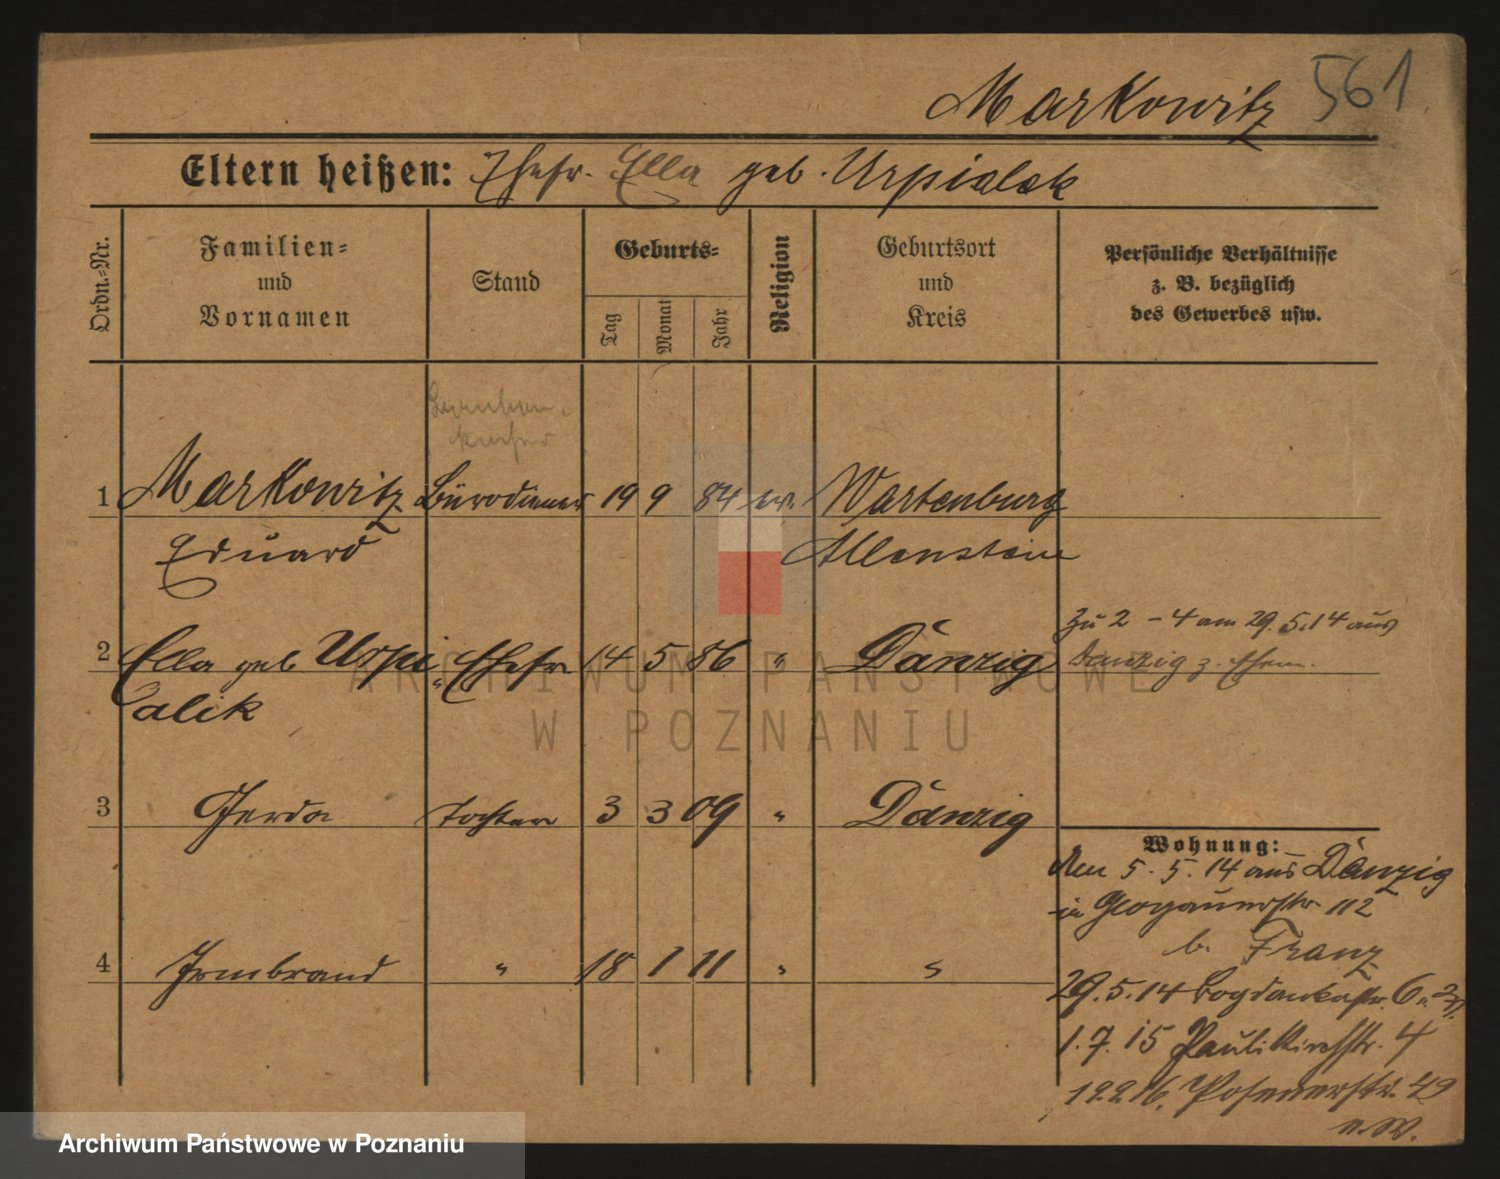 Markowitz 561
Eltern heißen: Ehefr. Ella geb. Urpialek
Ordn.-Nr.
Familien-
und
Vornamen
Stand
Geburts-
Tag
Monat
Jahr
Religion
Geburtsort
und
Kreis
Persönliche Verhältnisse
z. B. bezüglich
des Gewerbes usw.
1 Markowitz Bürodiener 19 9 84 ev. Wartenburg
Eduard Allenstein
Zu 2 - 4 am 29.5.14 aus
2 Ella geb Urpi Ehefr 14 5 86 " Danzig Danzig z. Ehem.
alik
3 Gerda Tochter 3 3 09 " Danzig
Wohnung:
Am 5. 5. 14 aus Danzig
in Glogauerstr 112
b. Franz
4 Irmbrand " 18 1 11 " "
29.5.14 Bogdankastr. 6
1. 7. 15 Paulikirchstr. 4
Posenerstr. 49
ARCHIWUM PAŃSTWOWE
W POZNANIU
Archiwum Państwowe w Poznaniu